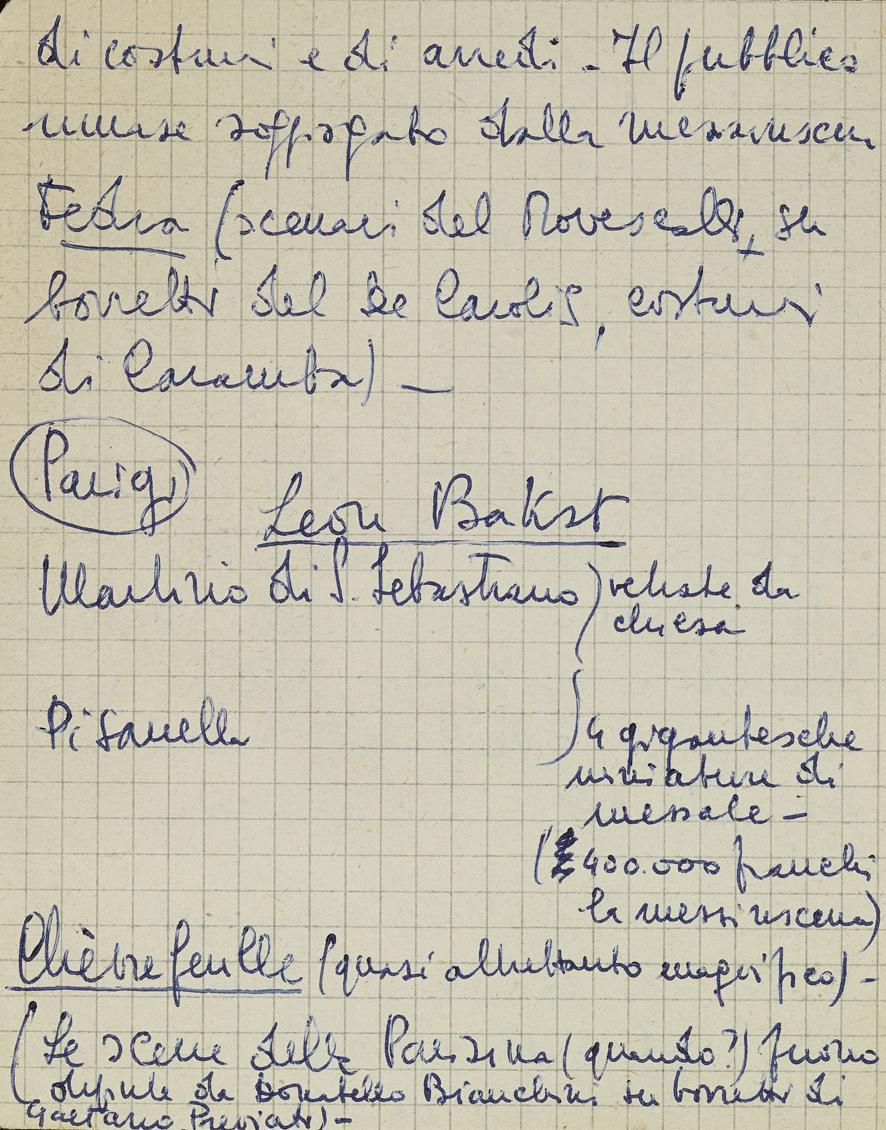 di costumi e di arredi - Il pubblico
rimase soggiogato dalla messinscena
Fedra (scenari del Rovescalli, su
bozzetti del De Carolis, costumi
di Caramba) -
Parigi
Leon Bakst
Martirio di S. Sebastiano) vetrate da
chiesa
Pisanella ) 4 gigantesche
miniature di
messale -
(400.000 franchi
la messinscena)
Chèvrefeuille (quasi altrettanto magnifico) -
(Le scene della Parisina (quando?) furono
dipinte da Donatello Bianchini su bozzetti di
Gaetano Previati) -